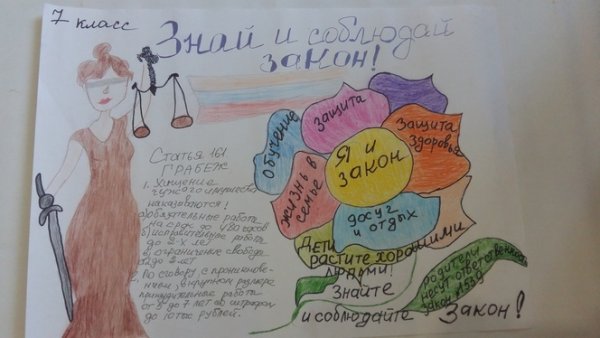 7 класс
Знай и соблюдай
закон!
Статья 161
ГРАБЕЖ
1. Хищение
чужого имущества
наказываются!
а) обязательные работы
на срок до 480 часов
б) исправительные работы
до 2-х лет
в) ограничение свободы
до 2 лет
2. По сговору, с проникнове-
нием, в крупном размере
принудительные работы
от 5 до 7 лет со штрафом
до 10тыс рублей.
Обучение
защита
защита
здоровья
Я и
закон
жизнь в
семье
досуг
и отдых
Дети
растите хорошими
людьми!
Знайте
и соблюдайте
Закон!
родители
несут ответственность
закон 1539